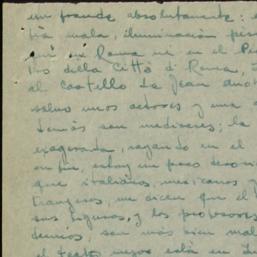 un fraude absolutamente: e
mala, iluminación pés
en Roma ni en el Pi
della Città di Roma,
al castello de Jean Anou
salvo unos actores y una
demás son mediocres; la
exagerada, rayando en el
un poco
que italianos, mexicanos y
tranjeros, me dicen que el
sus figuras, y los profesores
demás, son más bien mal
el teatro mejor está en